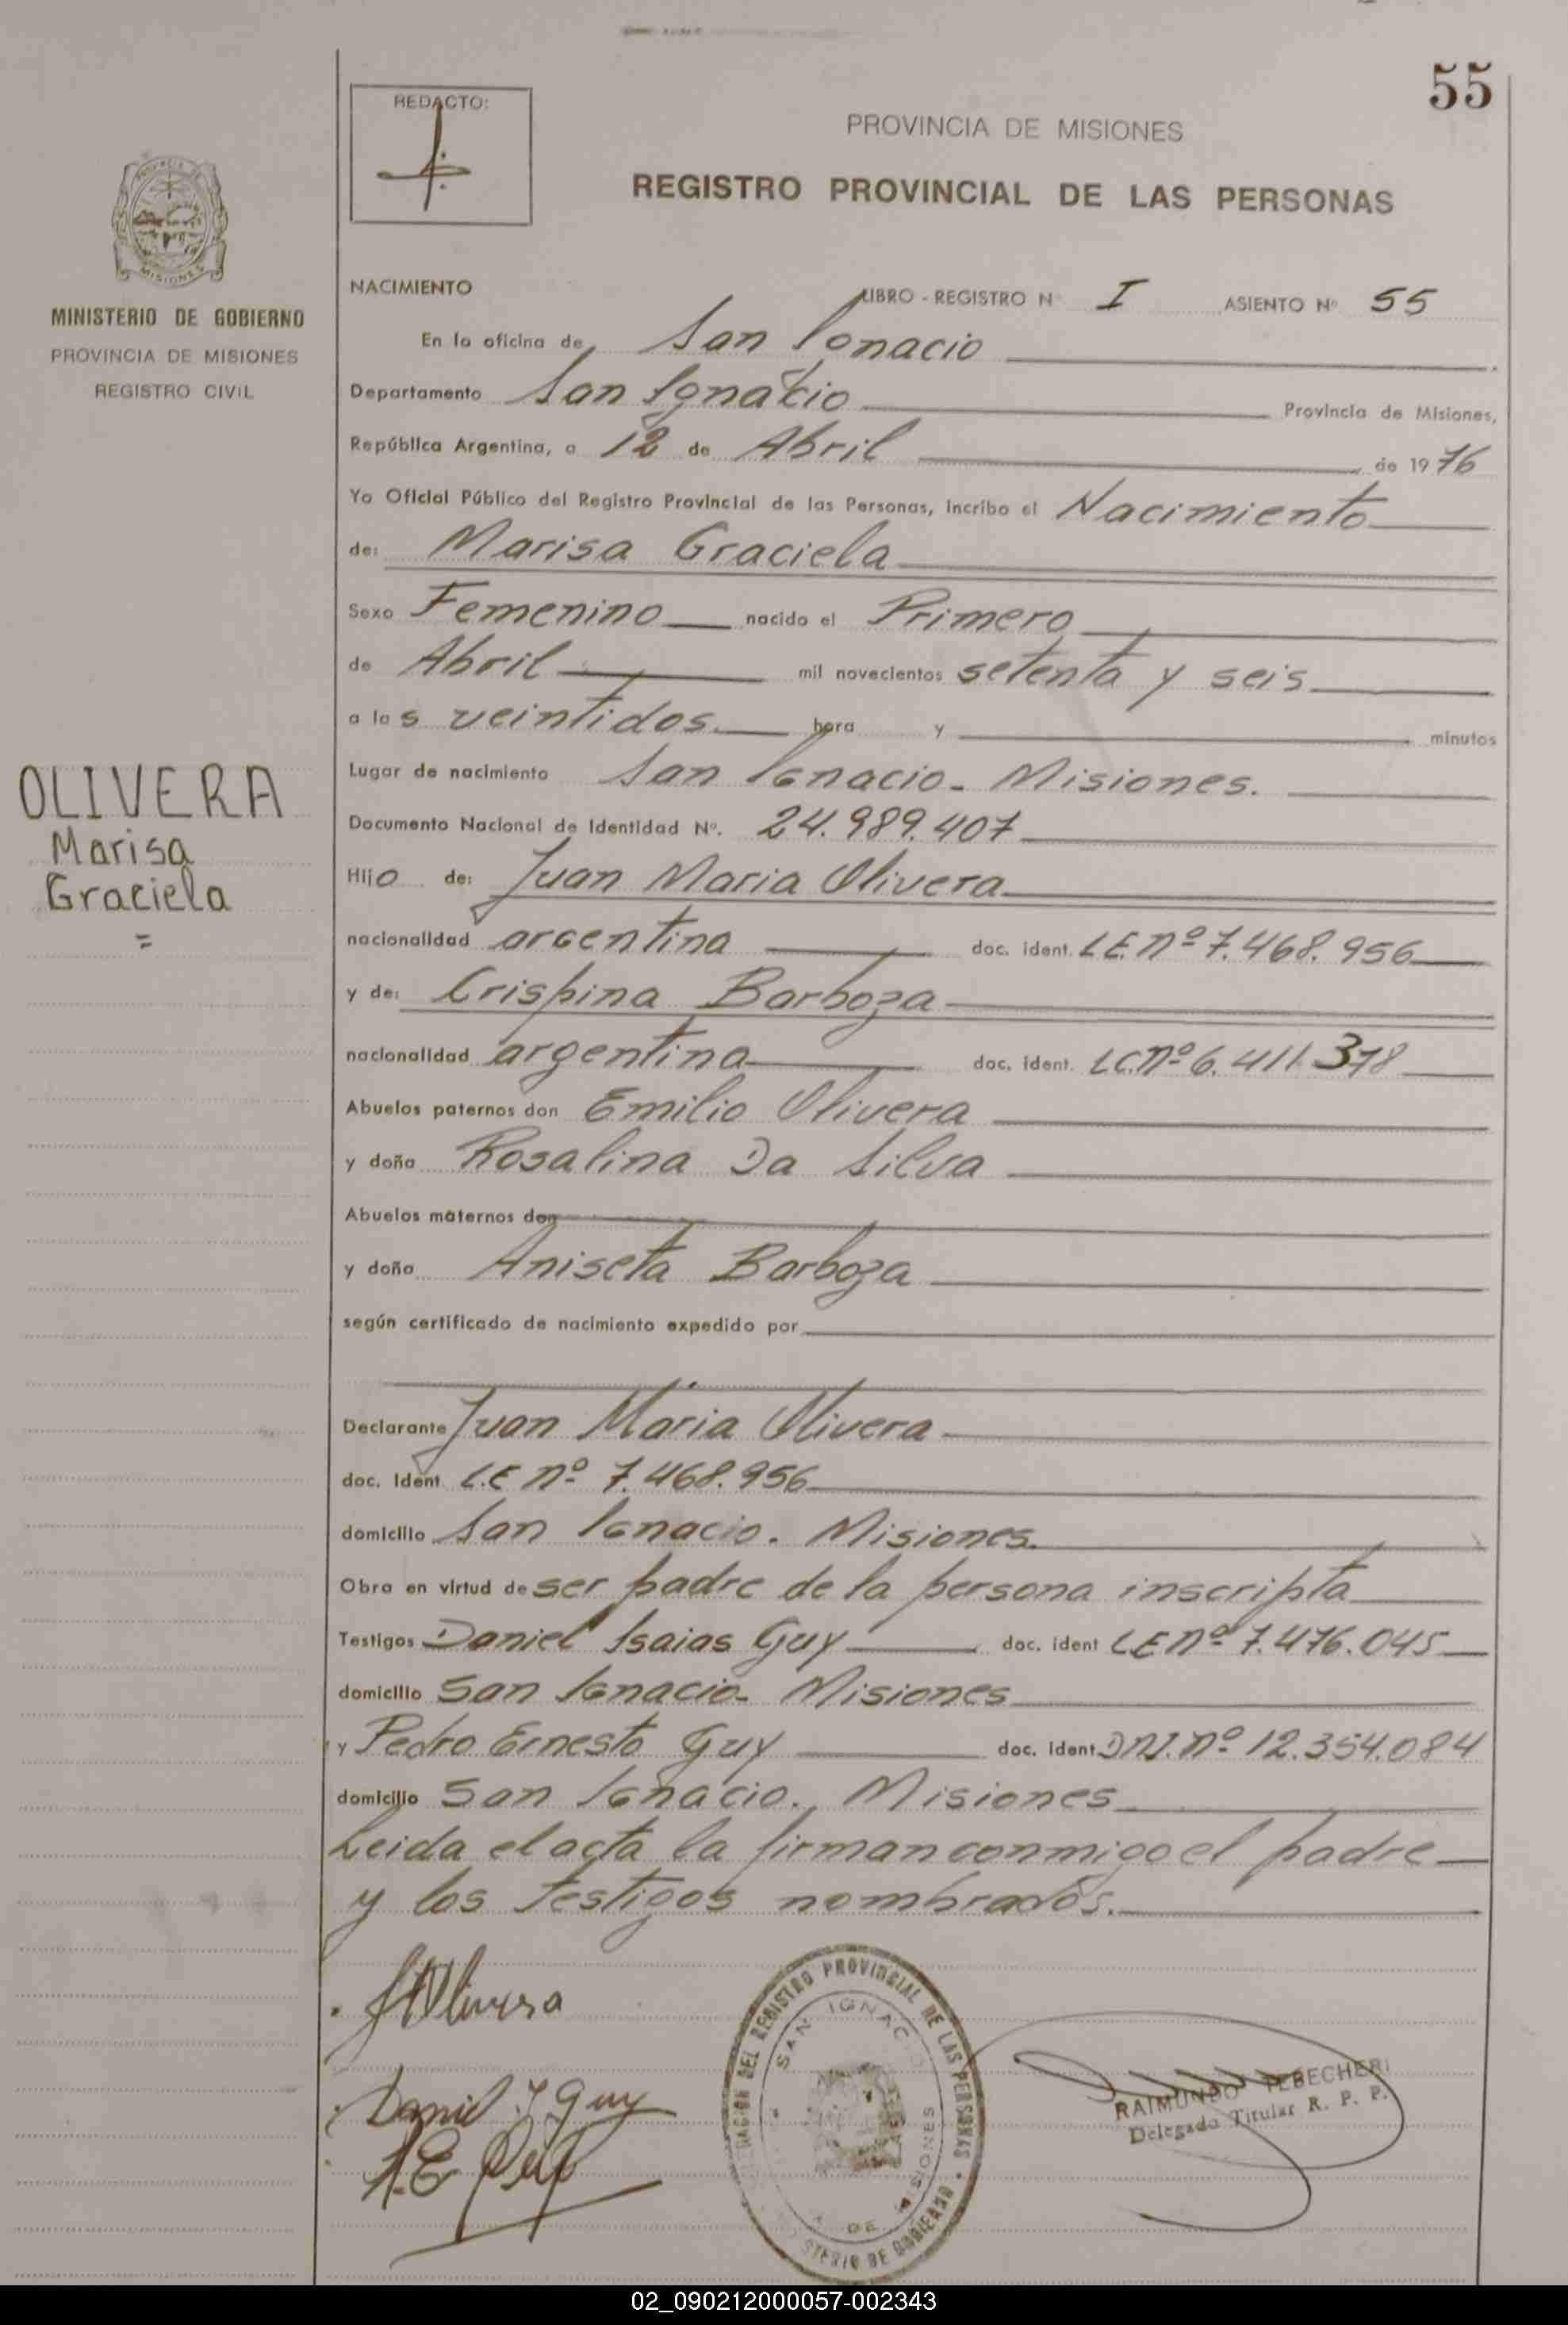 55
REDACTO:
PROVINCIA DE MISIONES
REGISTRO PROVINCIAL DE LAS PERSONAS
MISIONES
MINISTERIO DE GOBIERNO
PROVINCIA DE MISIONES
REGISTRO CIVIL
NACIMIENTO LIBRO - REGISTRO Nº I ASIENTO Nº 55
En la oficina de San Ignacio
Departamento San Ignacio Provincia de Misiones,
República Argentina, a 12 de Abril de 1976
Yo Oficial Público del Registro Provincial de las Personas, incribo el Nacimiento
de: Marisa Graciela
Sexo Femenino nacido el Primero
de Abril mil novecientos setenta y seis
a las veintidos hora y minutos
Lugar de nacimiento San Ignacio - Misiones.
OLIVERA
Marisa
Graciela
=
Documento Nacional de Identidad Nº. 24.989.407
Hijo de: Juan Maria Olivera
nacionalidad argentina doc. ident. L.E. nº 7.468.956
y de: Crispina Barboza
nacionalidad argentina doc. ident. L.C. nº 6.411.378
Abuelos paternos don Emilio Olivera
y doña Rosalina Da Silva
Abuelos maternos don
y doña Aniseta Barboza
según certificado de nacimiento expedido por
Declarante Juan Maria Olivera
doc. Ident L.E nº 7.468.956
domicilio San Ignacio. Misiones.
Obra en virtud de ser padre de la persona inscripta
Testigos Daniel Isaias Guy doc. ident L.E nº 7.476.045
domicilio San Ignacio - Misiones
y Pedro Ernesto Guy doc. ident. DNI. nº 12.354.084
domicilio San Ignacio. Misiones
Leida el acta la firman conmigo el padre
y los testigos nombrados.
J Olivera
Daniel I Guy
DEL REGISTRO PROVINCIAL DE LAS PERSONAS
SAN IGNACIO
DE MISIONES
DE GOBIERNO
RAIMUNDO TEBECHERI
Delegado Titular R. P. P.
02_090212000057-002343